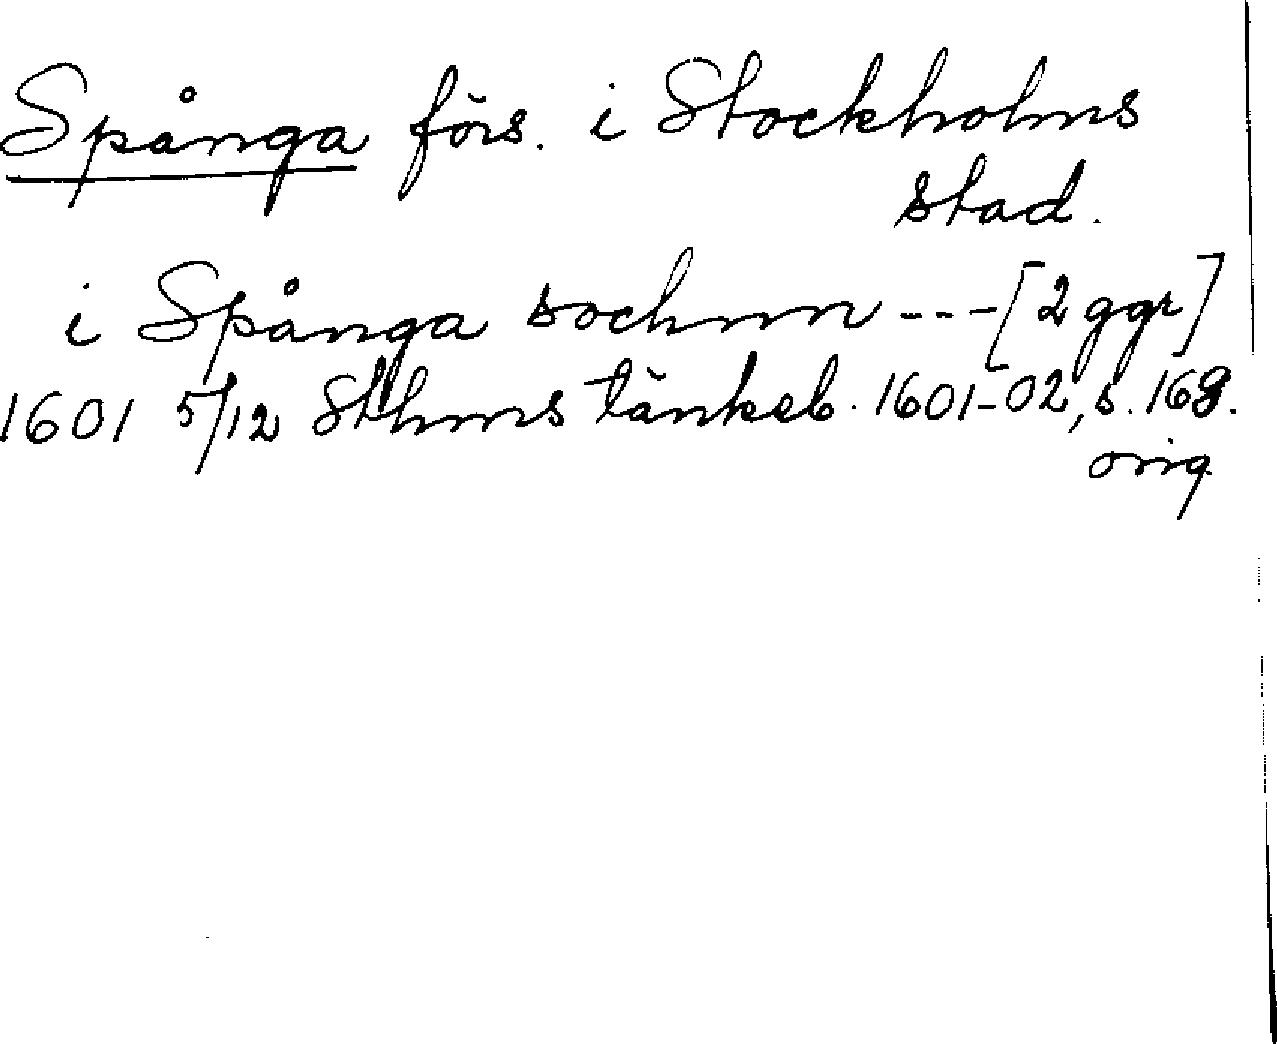 Spånga förs. i Stockholms
stad.
i Spånga sochnn --- [2 ggr]
1601 5/12 Sthms tänkeb. 1601-02, s. 169.
orig.